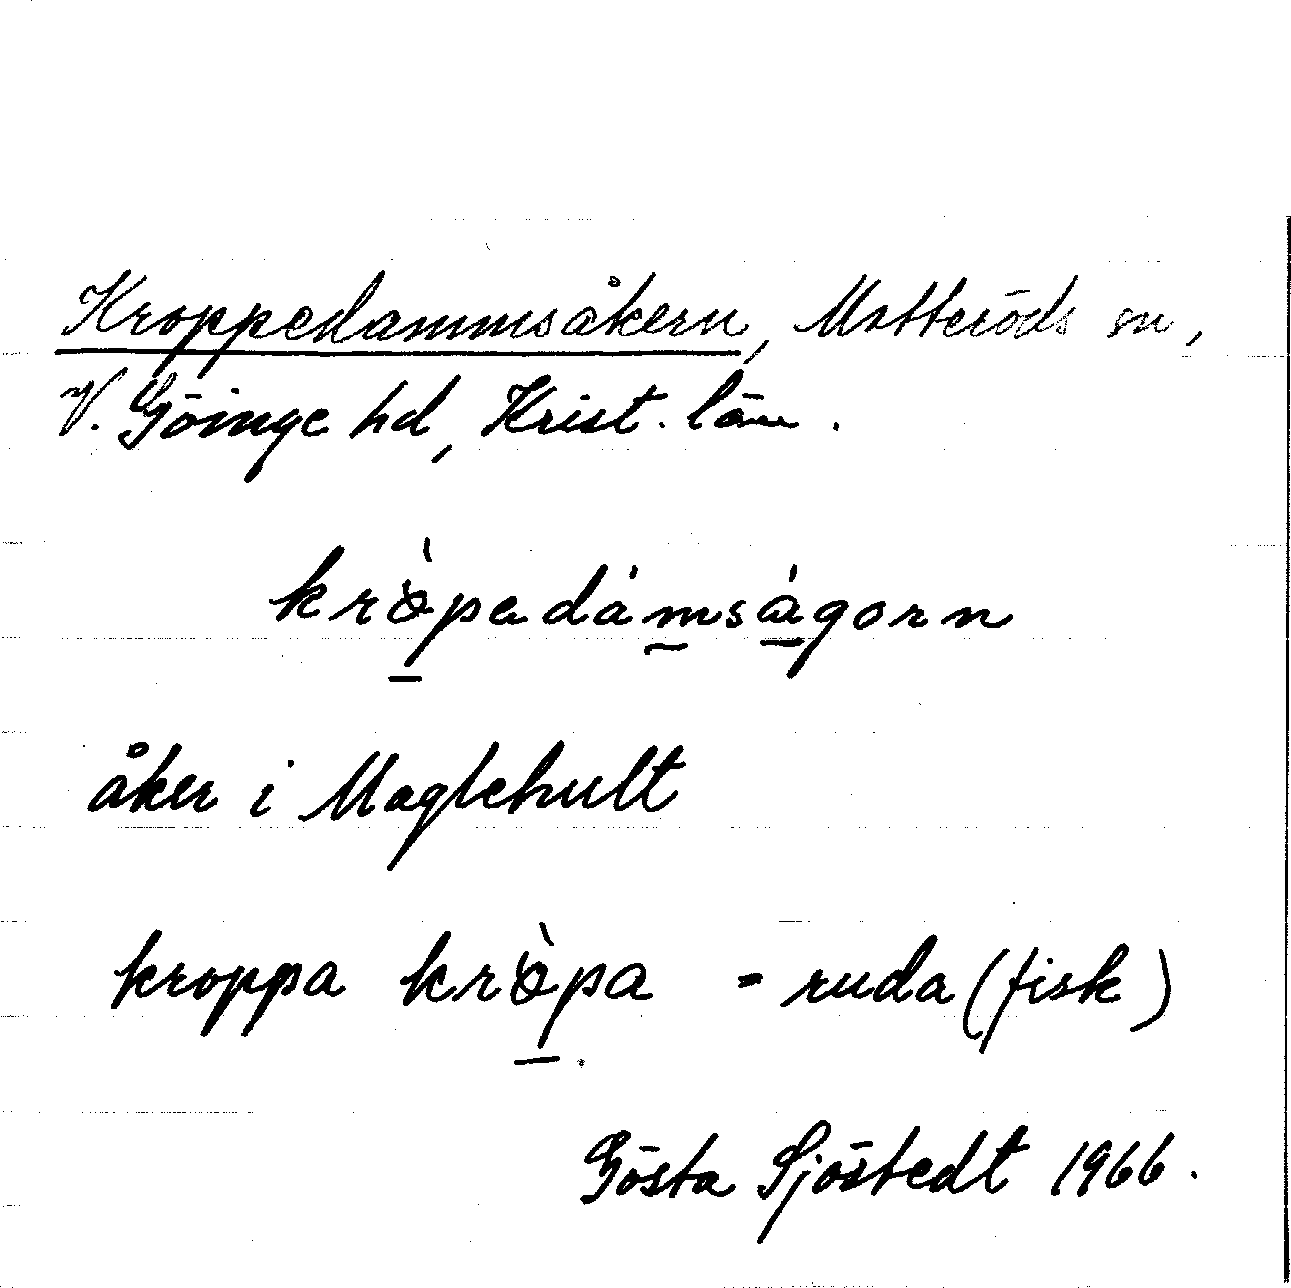 Kroppedammsåkern, Matteröds sn,
V. Göinge hd, Krist. län.
kròpedámsàgorn
åker i Maglehult
kroppa kròpa = ruda (fisk)
Gösta Sjöstedt 1966.